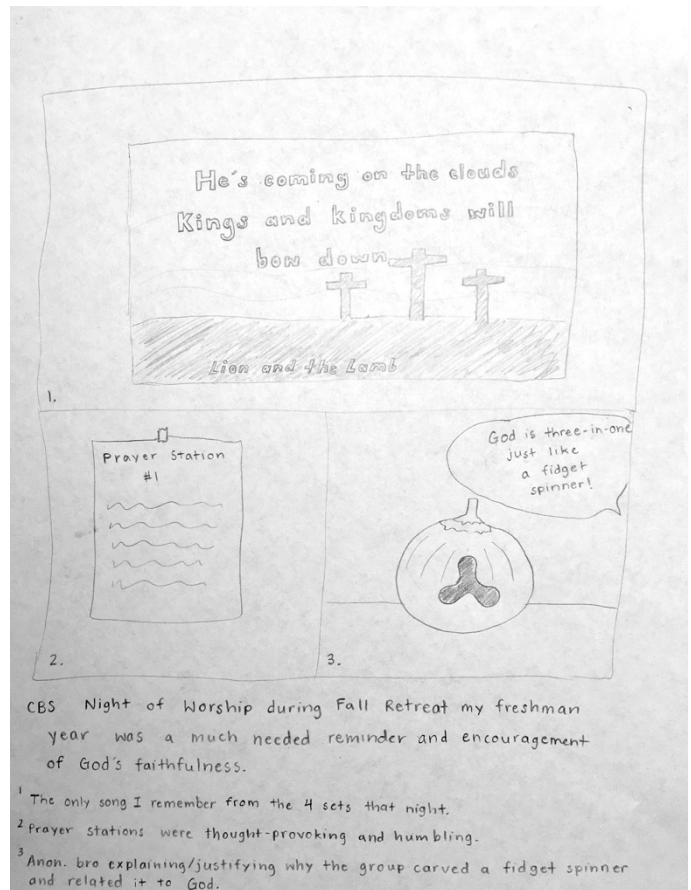 He's coming on the clouds
Kings and kingdoms will
bow down
Lion and the Lamb
1.
Prayer Station
#1
2.
God is three-in-one
just like
a fidget
spinner!
3.
CBS Night of Worship during Fall Retreat my freshman
year was a much needed reminder and encouragement
of God's faithfulness.
1 The only song I remember from the 4 sets that night.
2 Prayer stations were thought-provoking and humbling.
3 Anon. bro explaining/justifying why the group carved a fidget spinner
and related it to God.